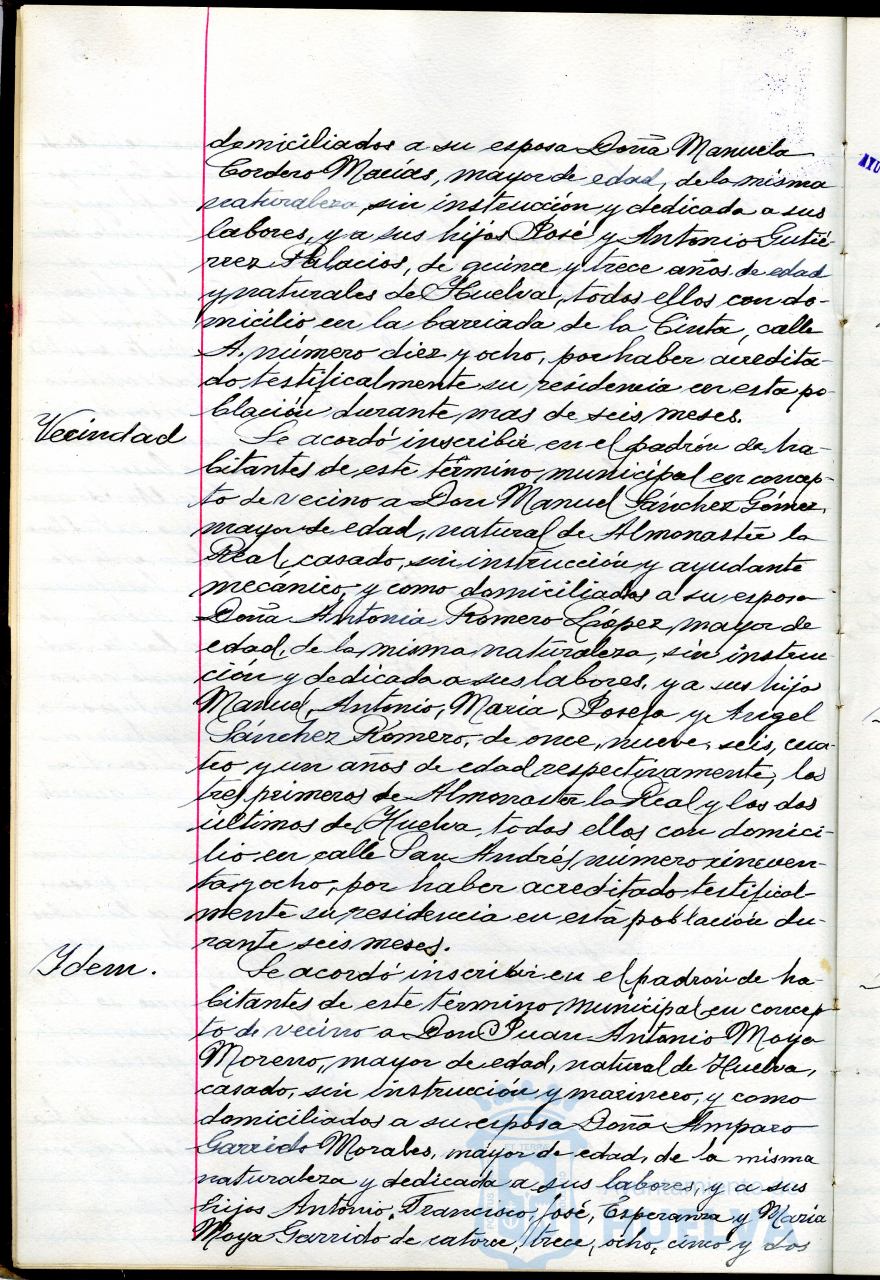 domiciliados a su esposa Doña Manuela
Cordero Macías, mayor de edad, de la misma
naturaleza, sin instrucción y dedicada a sus
labores, y a sus hijos José y Antonio Gutié-
rrez Palacios, de quince y trece años de edad
y naturales de Huelva, todos ellos con do-
micilio en la barriada de la Cinta, calle
A, número diez y ocho, por haber acredita-
do testificalmente su residencia en esta po-
blación durante mas de seis meses.
Vecindad
Se acordó inscribir en el padrón de ha-
bitantes de este término municipal en concep-
to de vecino a Don Manuel Sánchez Gómez,
mayor de edad, natural de Almonaster la
Real, casado, sin instrucción y ayudante
mecánico, y como domiciliados a su esposa
Doña Antonia Romero López, mayor de
edad, de la misma naturaleza, sin instruc-
ción y dedicada a sus labores, y a sus hijo
Manuel, Antonio, María, Josefa y Angel
Sánchez Romero, de once, nueve, seis, cua-
tro y un años de edad respectivamente, los
tres primeros de Almonaster la Real y los dos
últimos de Huelva, todos ellos con domici-
lio en calle San Andrés, número cincuen-
ta y ocho, por haber acreditado testifical-
mente su residencia en esta población du-
rante seis meses.
Idem.
Se acordó inscribir en el padrón de ha-
bitantes de este término municipal en concep
to de vecino a Don Juan Antonio Moya
Moreno, mayor de edad, natural de Huelva,
casado, sin instrucción y marinero, y como
domiciliados a su esposa Doña Amparo
Garrido Morales, mayor de edad, de la misma
naturaleza y dedicada a sus labores, y a sus
hijos Antonio, Francisco, José, Esperanza y María
Moya Garrido de catorce, trece, ocho, cinco y dos
Ayuntamiento de
HUELVA